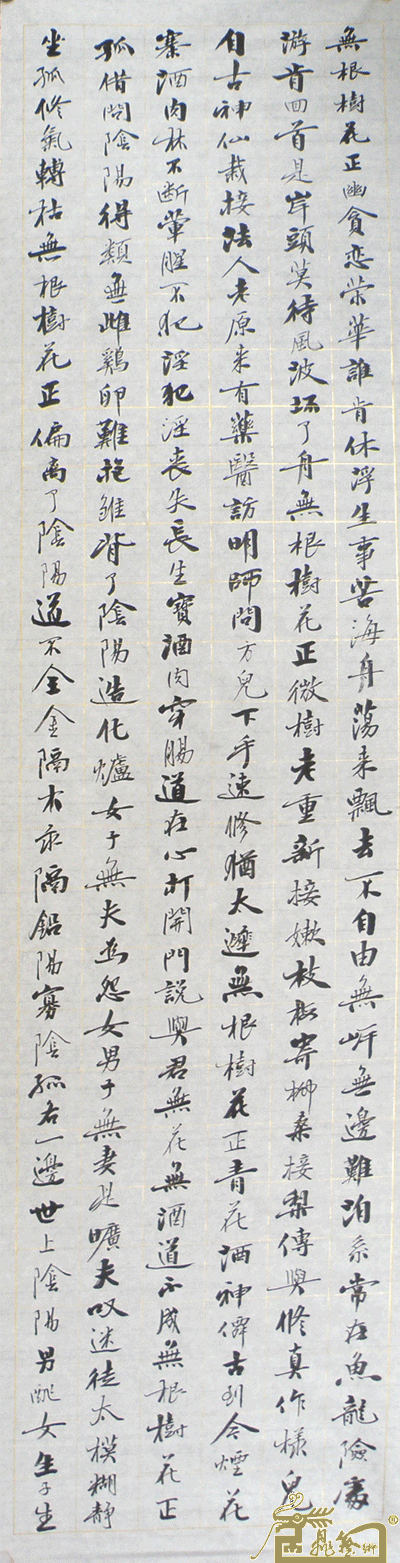 無根樹花正幽貪恋榮華誰肯休浮生事苦海舟蕩来飄去不自由無岍無邊難泊系常在魚龍險處
游肯回首是岸頭莫待風波坏了舟無根樹花正微樹老重新接嫩枝梅寄柳桑接梨傳與修真作樣兒
自古神仙栽接法人老原来有藥醫訪明師問方兒下手速修猶太遲無根樹花正青花酒神仙古到今煙花
寨酒肉林不断葷腥不犯淫犯淫丧失長生寶酒肉穿腸道在心打開門說與君無花無酒道不成無根樹花正
孤借問陰陽得類無雌鷄卵難抱雏背了陰陽造化爐女子無夫為怨女男子無妻是曠夫叹迷徒太模糊静
坐孤修氣轉枯無根樹花正偏離了陰陽道不全金隔木汞隔鉛陽寡陰孤右一邊世上陰陽男配女生子生